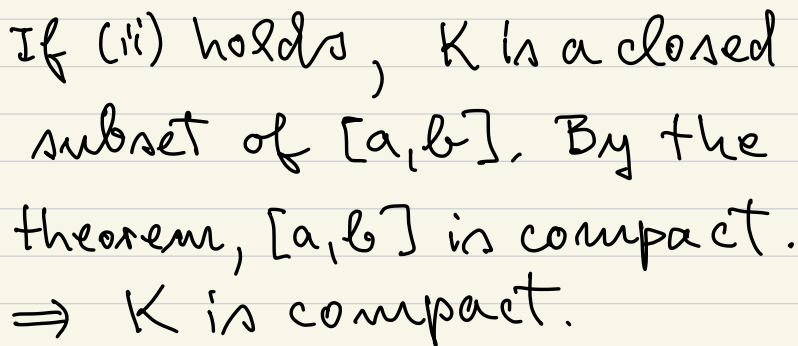 If (ii) holds, K is a closed
subset of [a,b]. By the
theorem, [a,b] is compact.
⟹ K is compact.